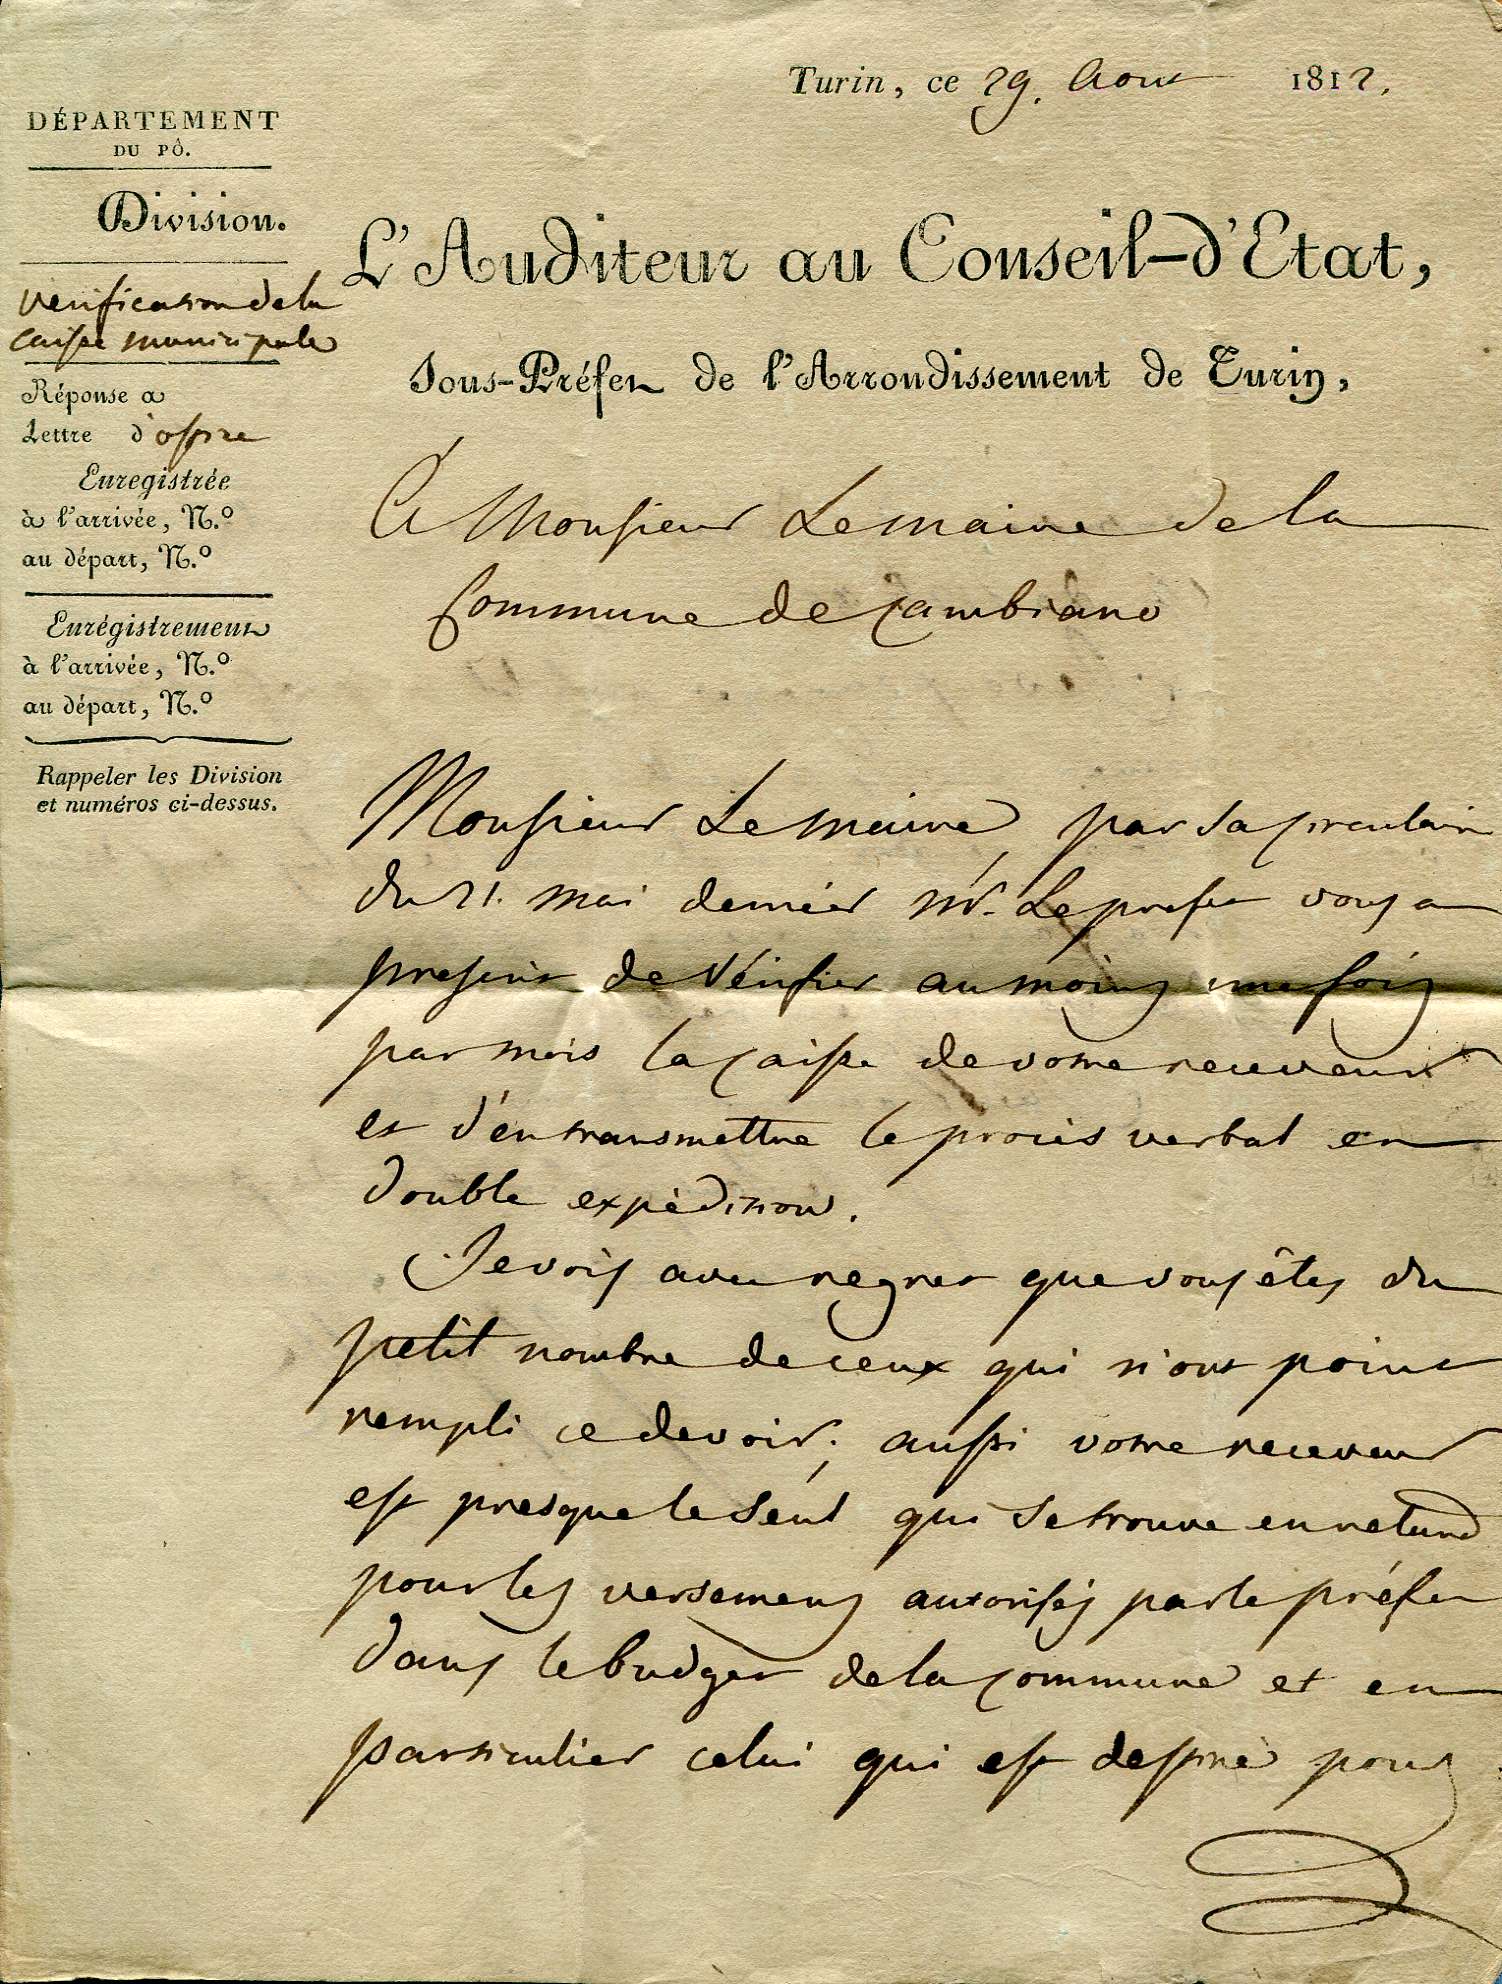 Turin, ce 29. Aout 1812.
DÉPARTEMENT
DU PÔ.
Division.
verification de la
caisse municipale
Réponse a
Lettre d'office
Enregistrée
à l'arrivée, N.º
au départ, N.º
Enrégistrement
à l'arrivée, N.º
au départ, N.º
Rappeler les Division
et numéros ci-dessus.
L'Auditeur au Conseil-d'Etat,
Sous-Préfet de l'Arrondissement de Turin,
A Monsieur Le maire de la
Commune de Cambiano
Monsieur Le maire, par sa circulaire
du 21. mai dernier Mr. Le prefet vous a
prescrit de vérifier au moins une fois
par mois la caisse de votre receveur
et d'en transmettre le procès verbal en
double expèdition.
Je vois avec regret que vous êtes du
petit nombre de ceux qui n'ont point
rempli ce devoir; aussi votre receveur
est presque le seul qui se trouve en retard
pour les versemens autorisés par le préfet
dans le budget de la commune et en
particulier celui qui est destiné pour